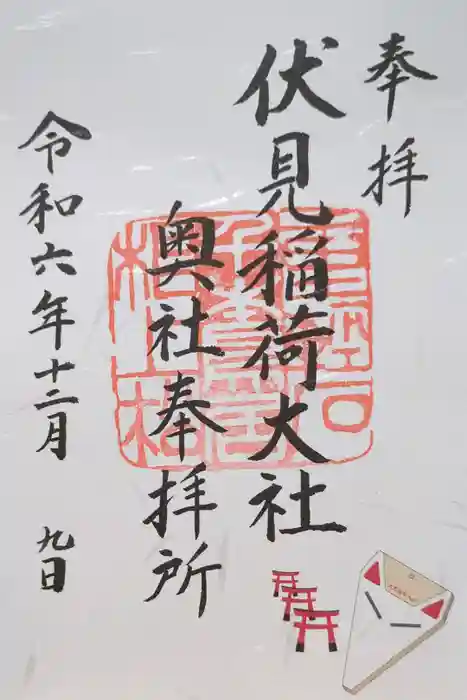 奉拝
伏見稲荷大社
奥社奉拝所
令和六年十二月
九日